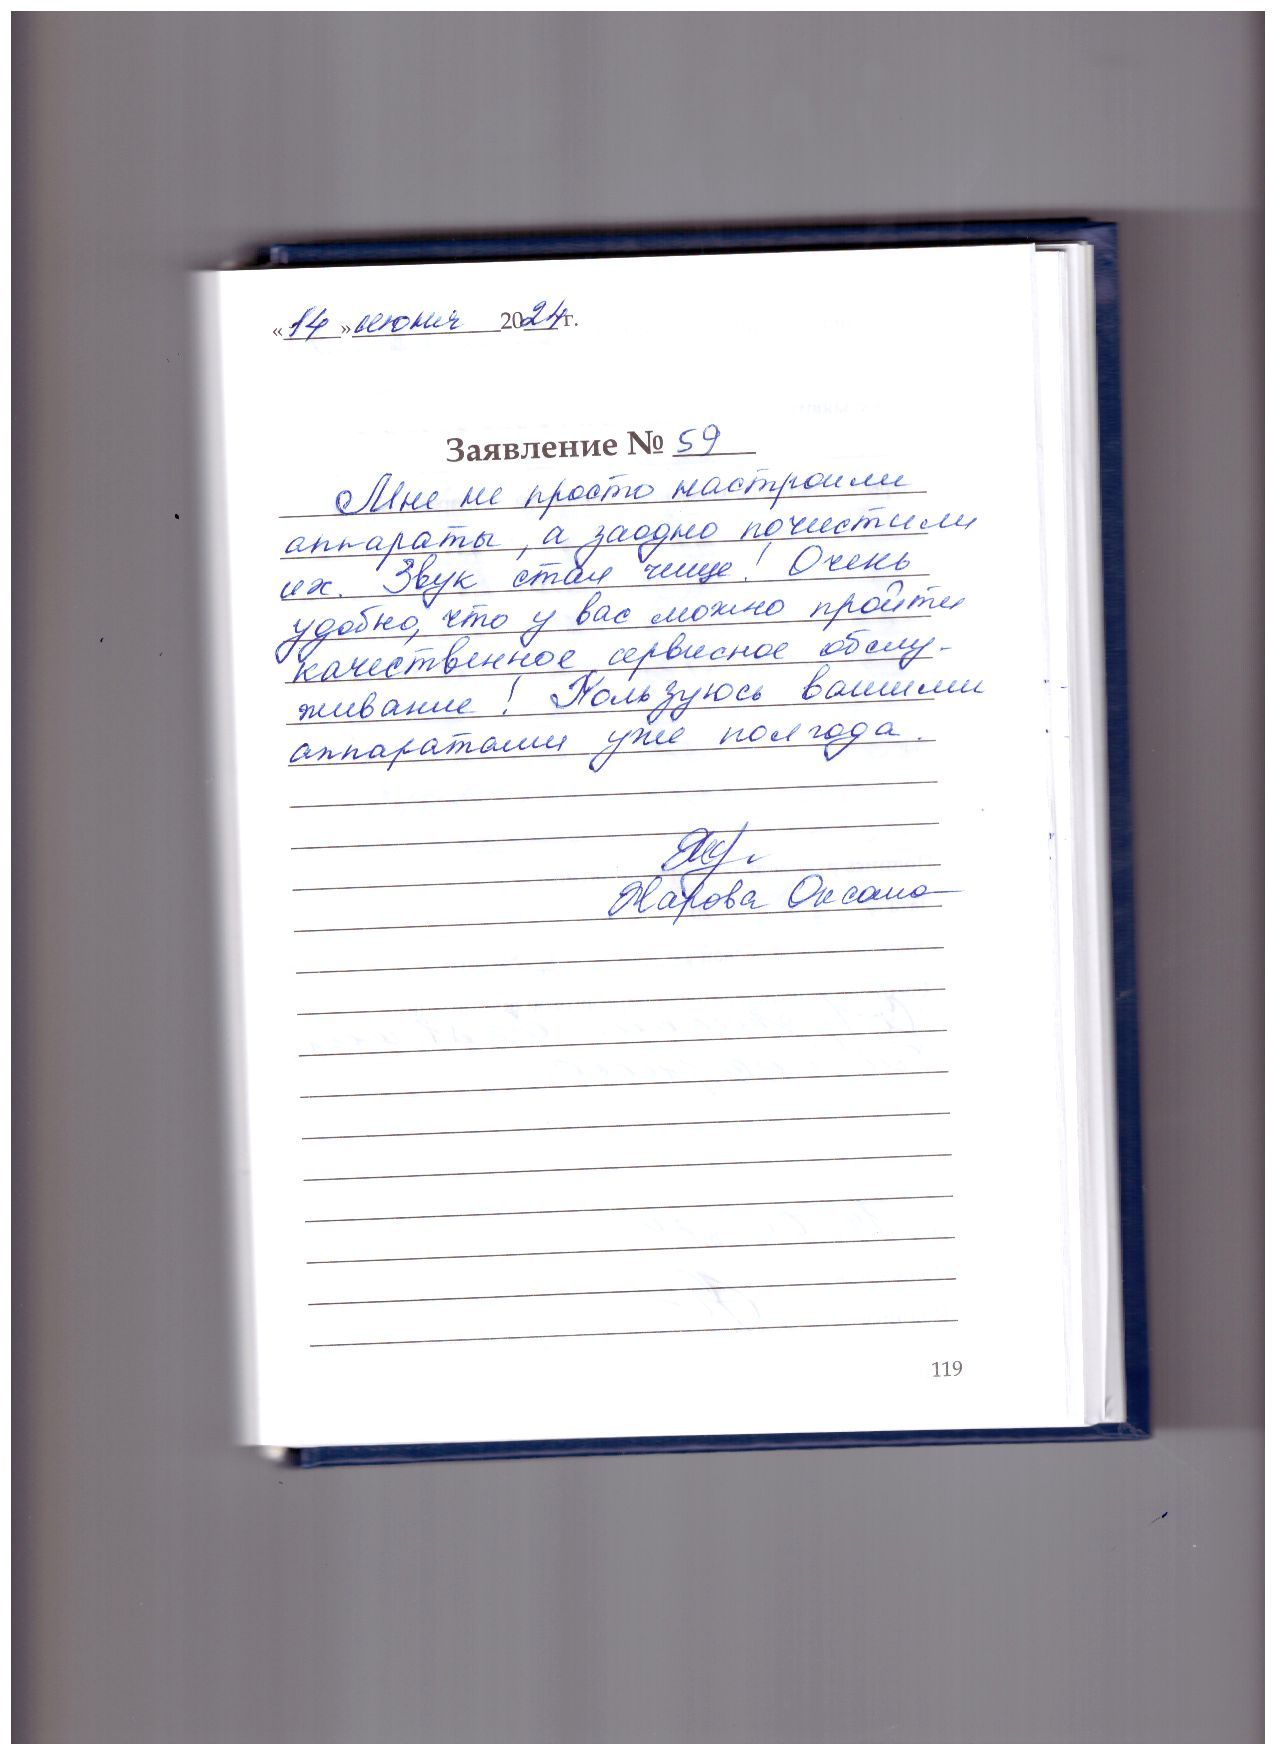 «14» июня 2024 г.
Заявление № 59
Мне не просто настроили
аппараты, а заодно почистили
их. Звук стал чище! Очень
удобно, что у вас можно пройти
качественное сервисное обслу-
живание! Пользуюсь вашими
аппаратами уже полгода.
Оксана
119